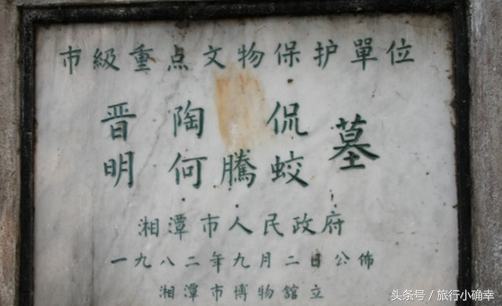 市級重点文物保护單位
晋 陶 侃
明 何騰蛟 墓
湘潭市人民政府
一九八二年九月二日公佈
湘潭市博物館立
头条号 / 旅行小确幸